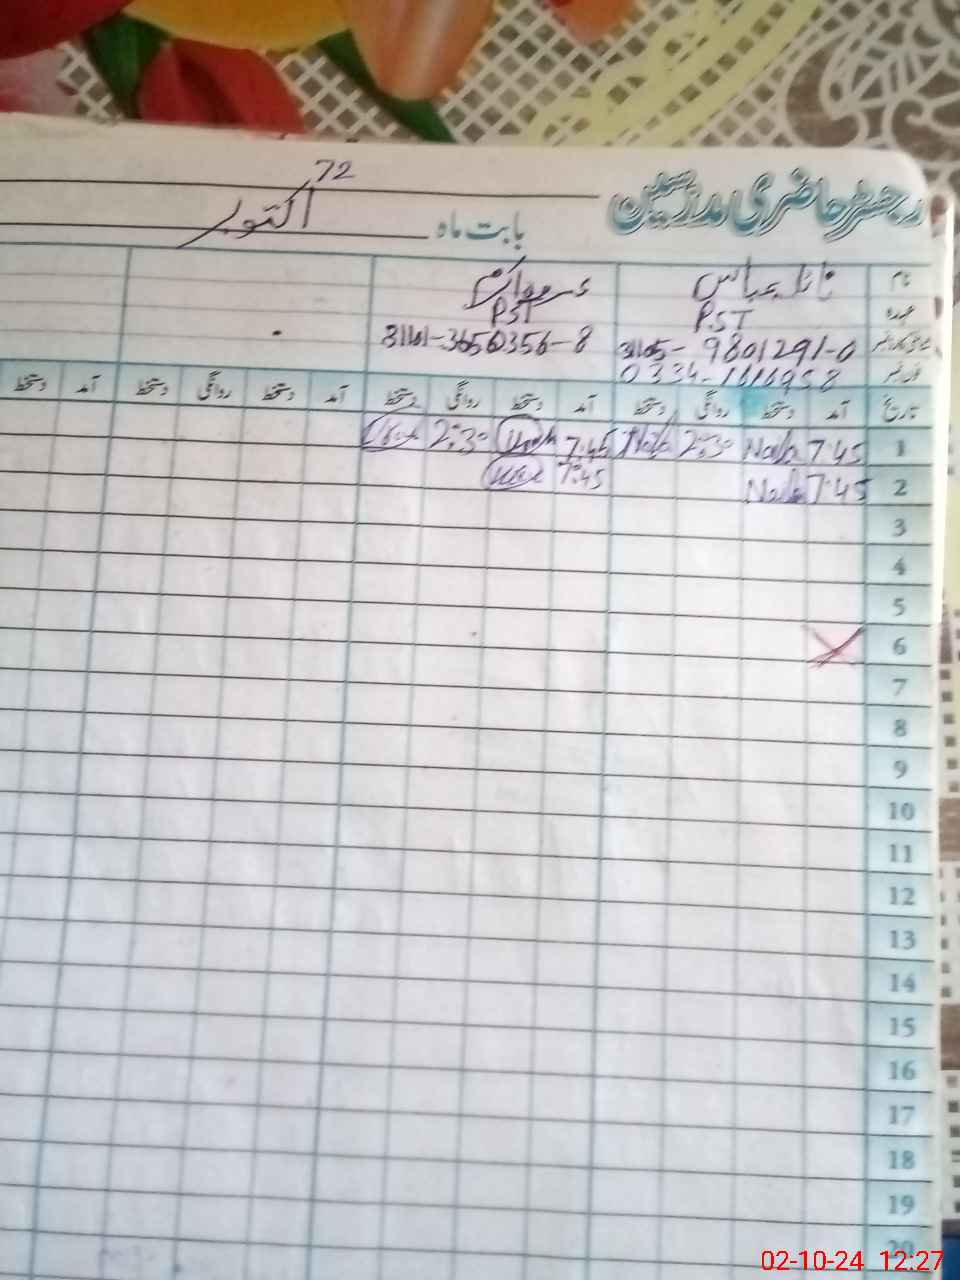 72
رجسٹر حاضری مدرسین
بابت ماہ اکتوبر
نام نائلہ عباس
عہدہ PST PST
شناختی کارڈ نمبر 31105-9801291-0 31101-3650356-8
فون نمبر 0334-1616958
تاریخ آمد دستخط روانگی دستخط آمد دستخط روانگی دستخط آمد دستخط روانگی دستخط آمد دستخط
1 7:45 Naila 2:30 Naila 7:45 2:30
2 7:45 Naila 7:45
3
4
5
6
7
8
9
10
11
12
13
14
15
16
17
18
19
20
02-10-24 12:27